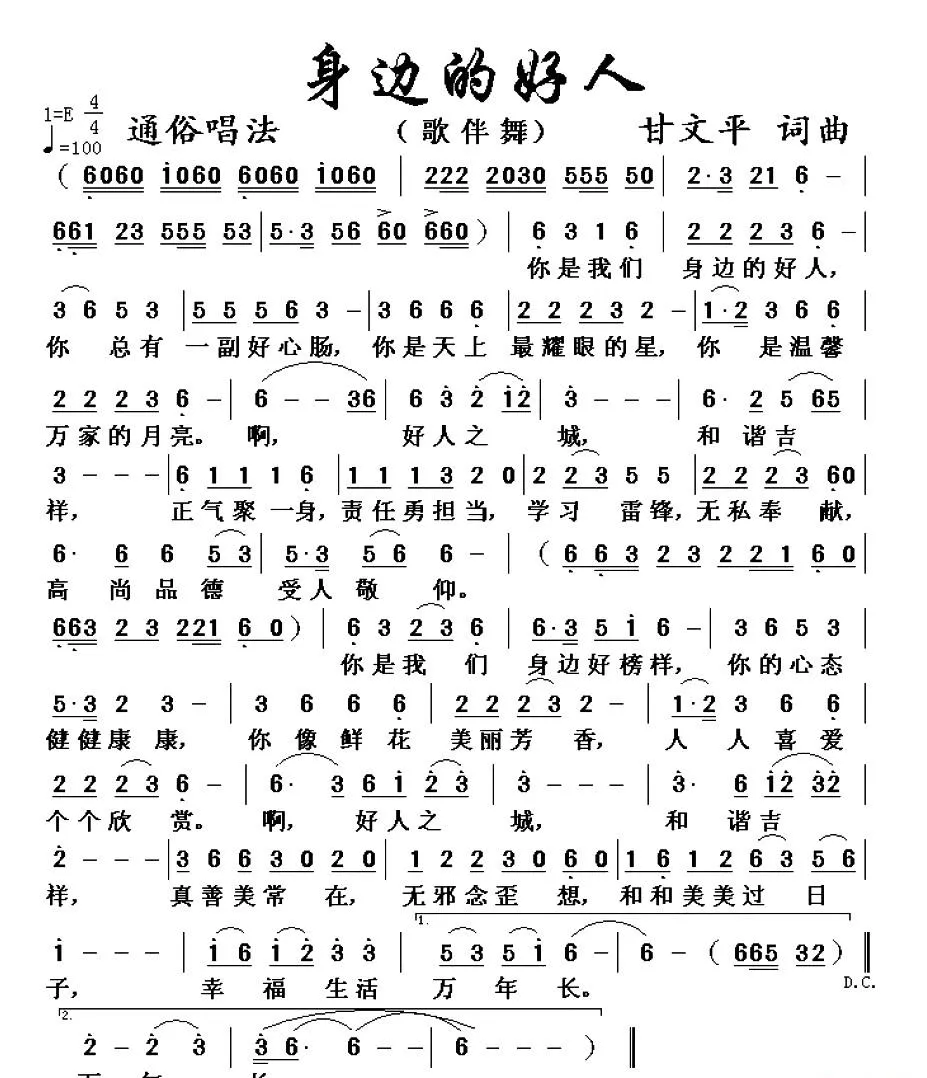 身边的好人
1=E 4/4
♩=100 通俗唱法 （歌伴舞） 甘文平 词曲
（6060 i060 6060 i060 | 222 2030 555 50 | 2·3 21 6 - |
661 23 555 53 | 5·3 56 60 660 ）| 6 3 1 6 | 2 2 2 3 6 - |
你是我们 身边的好人，
3 6 5 3 | 5 5 5 6 3 - | 3 6 6 6 | 2 2 2 3 2 - | 1·2 3 6 6 |
你 总有 一副好心肠，你是天上 最耀眼的星，你 是温馨
2 2 2 3 6 - | 6 - - 36 | 6 3 2 i2 | 3 - - - | 6· 2 5 65 |
万家的月亮。 啊， 好人之 城， 和 谐吉
3 - - - | 6 1 1 1 6 | 1 1 1 3 2 0 | 2 2 3 5 5 | 2 2 2 3 60 |
样， 正气聚一身，责任勇担当，学习 雷锋，无私奉 献，
6· 6 6 5 3 | 5·3 5 6 6 - |（6 6 3 2 3 2 2 1 6 0 |
高 尚品德 受人敬 仰。
663 2 3 221 6 0 ）| 6 3 2 3 6 | 6·3 5 i 6 - | 3 6 5 3 |
你是我 们 身边好榜样， 你的心态
5·3 2 3 - | 3 6 6 6 | 2 2 2 3 2 - | 1·2 3 6 6 |
健健康 康， 你 像鲜花 美丽芳 香， 人 人喜爱
2 2 2 3 6 - | 6· 3 6 i 2 3 | 3 - - - | 3· 6 i2 32 |
个个欣 赏。 啊， 好人之 城， 和 谐吉
2 - - - | 3 6 6 3 0 2 0 | 1 2 2 3 0 6 0 | 1 6 1 2 6 3 5 6 |
样， 真善美常 在，无邪念歪 想，和和美美过 日
1.
i - - - | i 6 i 2 3 3 | 5 3 5 i 6 - | 6 - （ 665 32 ）‖
子， 幸 福 生活 万 年 长。 D.C.
2.
2 - 2 3 | 3 6· 6 - | 6 - - - ）‖